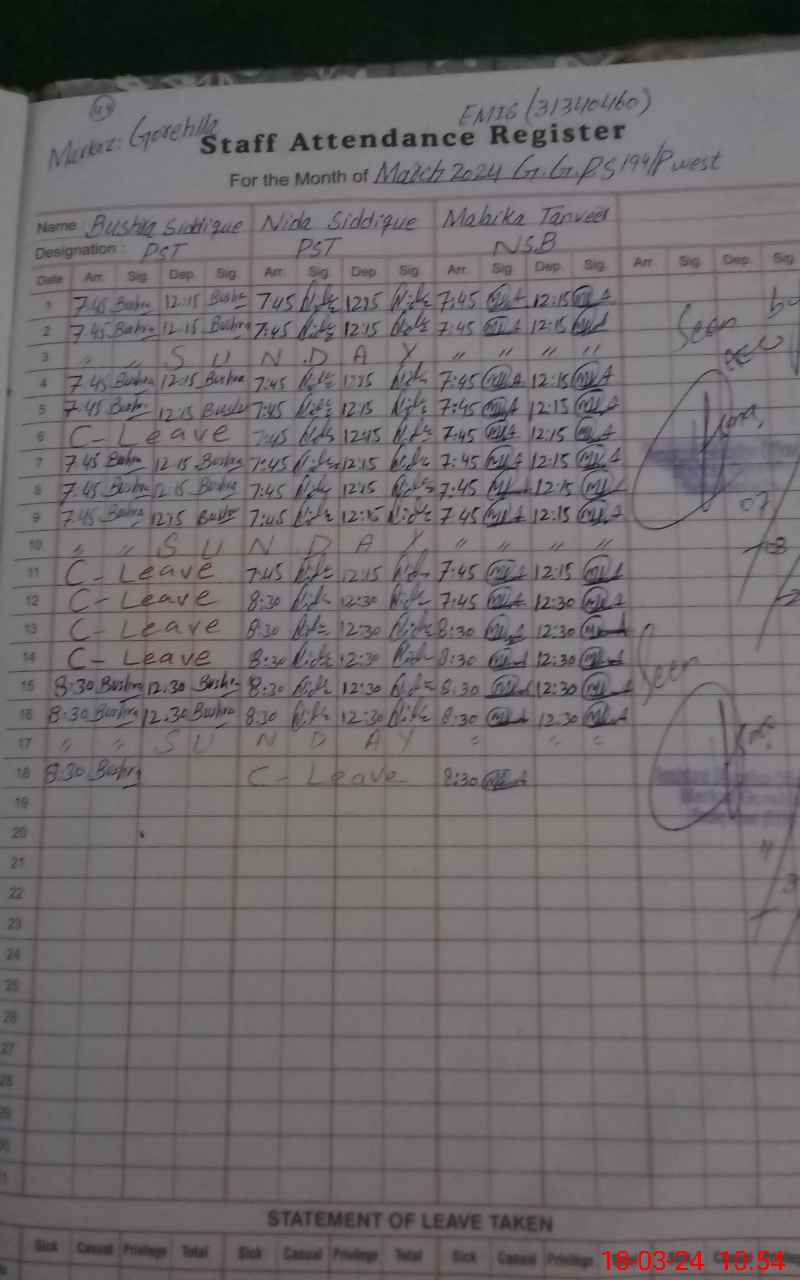 49
EMIS (31340460)
Markaz: Gorehlla
Staff Attendance Register
For the Month of March 2024 G.G.P.S 194/P west
Name : Bushra Siddique Nida Siddique Mabika Tanveer
Designation : PST PST N.S.B
Date Arr. Sig. Dep. Sig. Arr. Sig. Dep. Sig. Arr. Sig. Dep. Sig. Arr. Sig. Dep. Sig.
1 7:45 Bushra 12:15 Bushra 7:45 Nida 12:15 Nida 7:45 12:15
2 7:45 Bushra 12:15 Bushra 7:45 Nida 12:15 Nida 7:45 12:15
Seen
3 " " S U N D A Y " " " "
4 7:45 Bushra 12:15 Bushra 7:45 Nida 12:15 Nida 7:45 12:15
5 7:45 Bushra 12:15 Bushra 7:45 Nida 12:15 Nida 7:45 12:15
6 C - Leave 7:45 Nida 12:15 Nida 7:45 12:15
7 7:45 Bushra 12:15 Bushra 7:45 Nida 12:15 Nida 7:45 12:15
8 7:45 Bushra 12:15 Bushra 7:45 Nida 12:15 Nida 7:45 12:15
9 7:45 Bushra 12:15 Bushra 7:45 Nida 12:15 Nida 7:45 12:15
07
10 " " S U N D A Y " " " "
11 C - Leave 7:45 Nida 12:15 Nida 7:45 12:15
12 C - Leave 8:30 Nida 12:30 Nida 7:45 12:30
13 C - Leave 8:30 Nida 12:30 Nida 8:30 12:30
14 C - Leave 8:30 Nida 12:30 Nida 8:30 12:30
Seen
15 8:30 Bushra 12:30 Bushra 8:30 Nida 12:30 Nida 8:30 12:30
16 8:30 Bushra 12:30 Bushra 8:30 Nida 12:30 Nida 8:30 12:30
17 " " S U N D A Y " " "
18 8:30 Bushra C - Leave 8:30
19
20
21
22
23
24
25
26
27
28
29
30
31
STATEMENT OF LEAVE TAKEN
Sick Casual Privilege Total Sick Casual Privilege Total Sick Casual Privilege
18-03-24 10:54